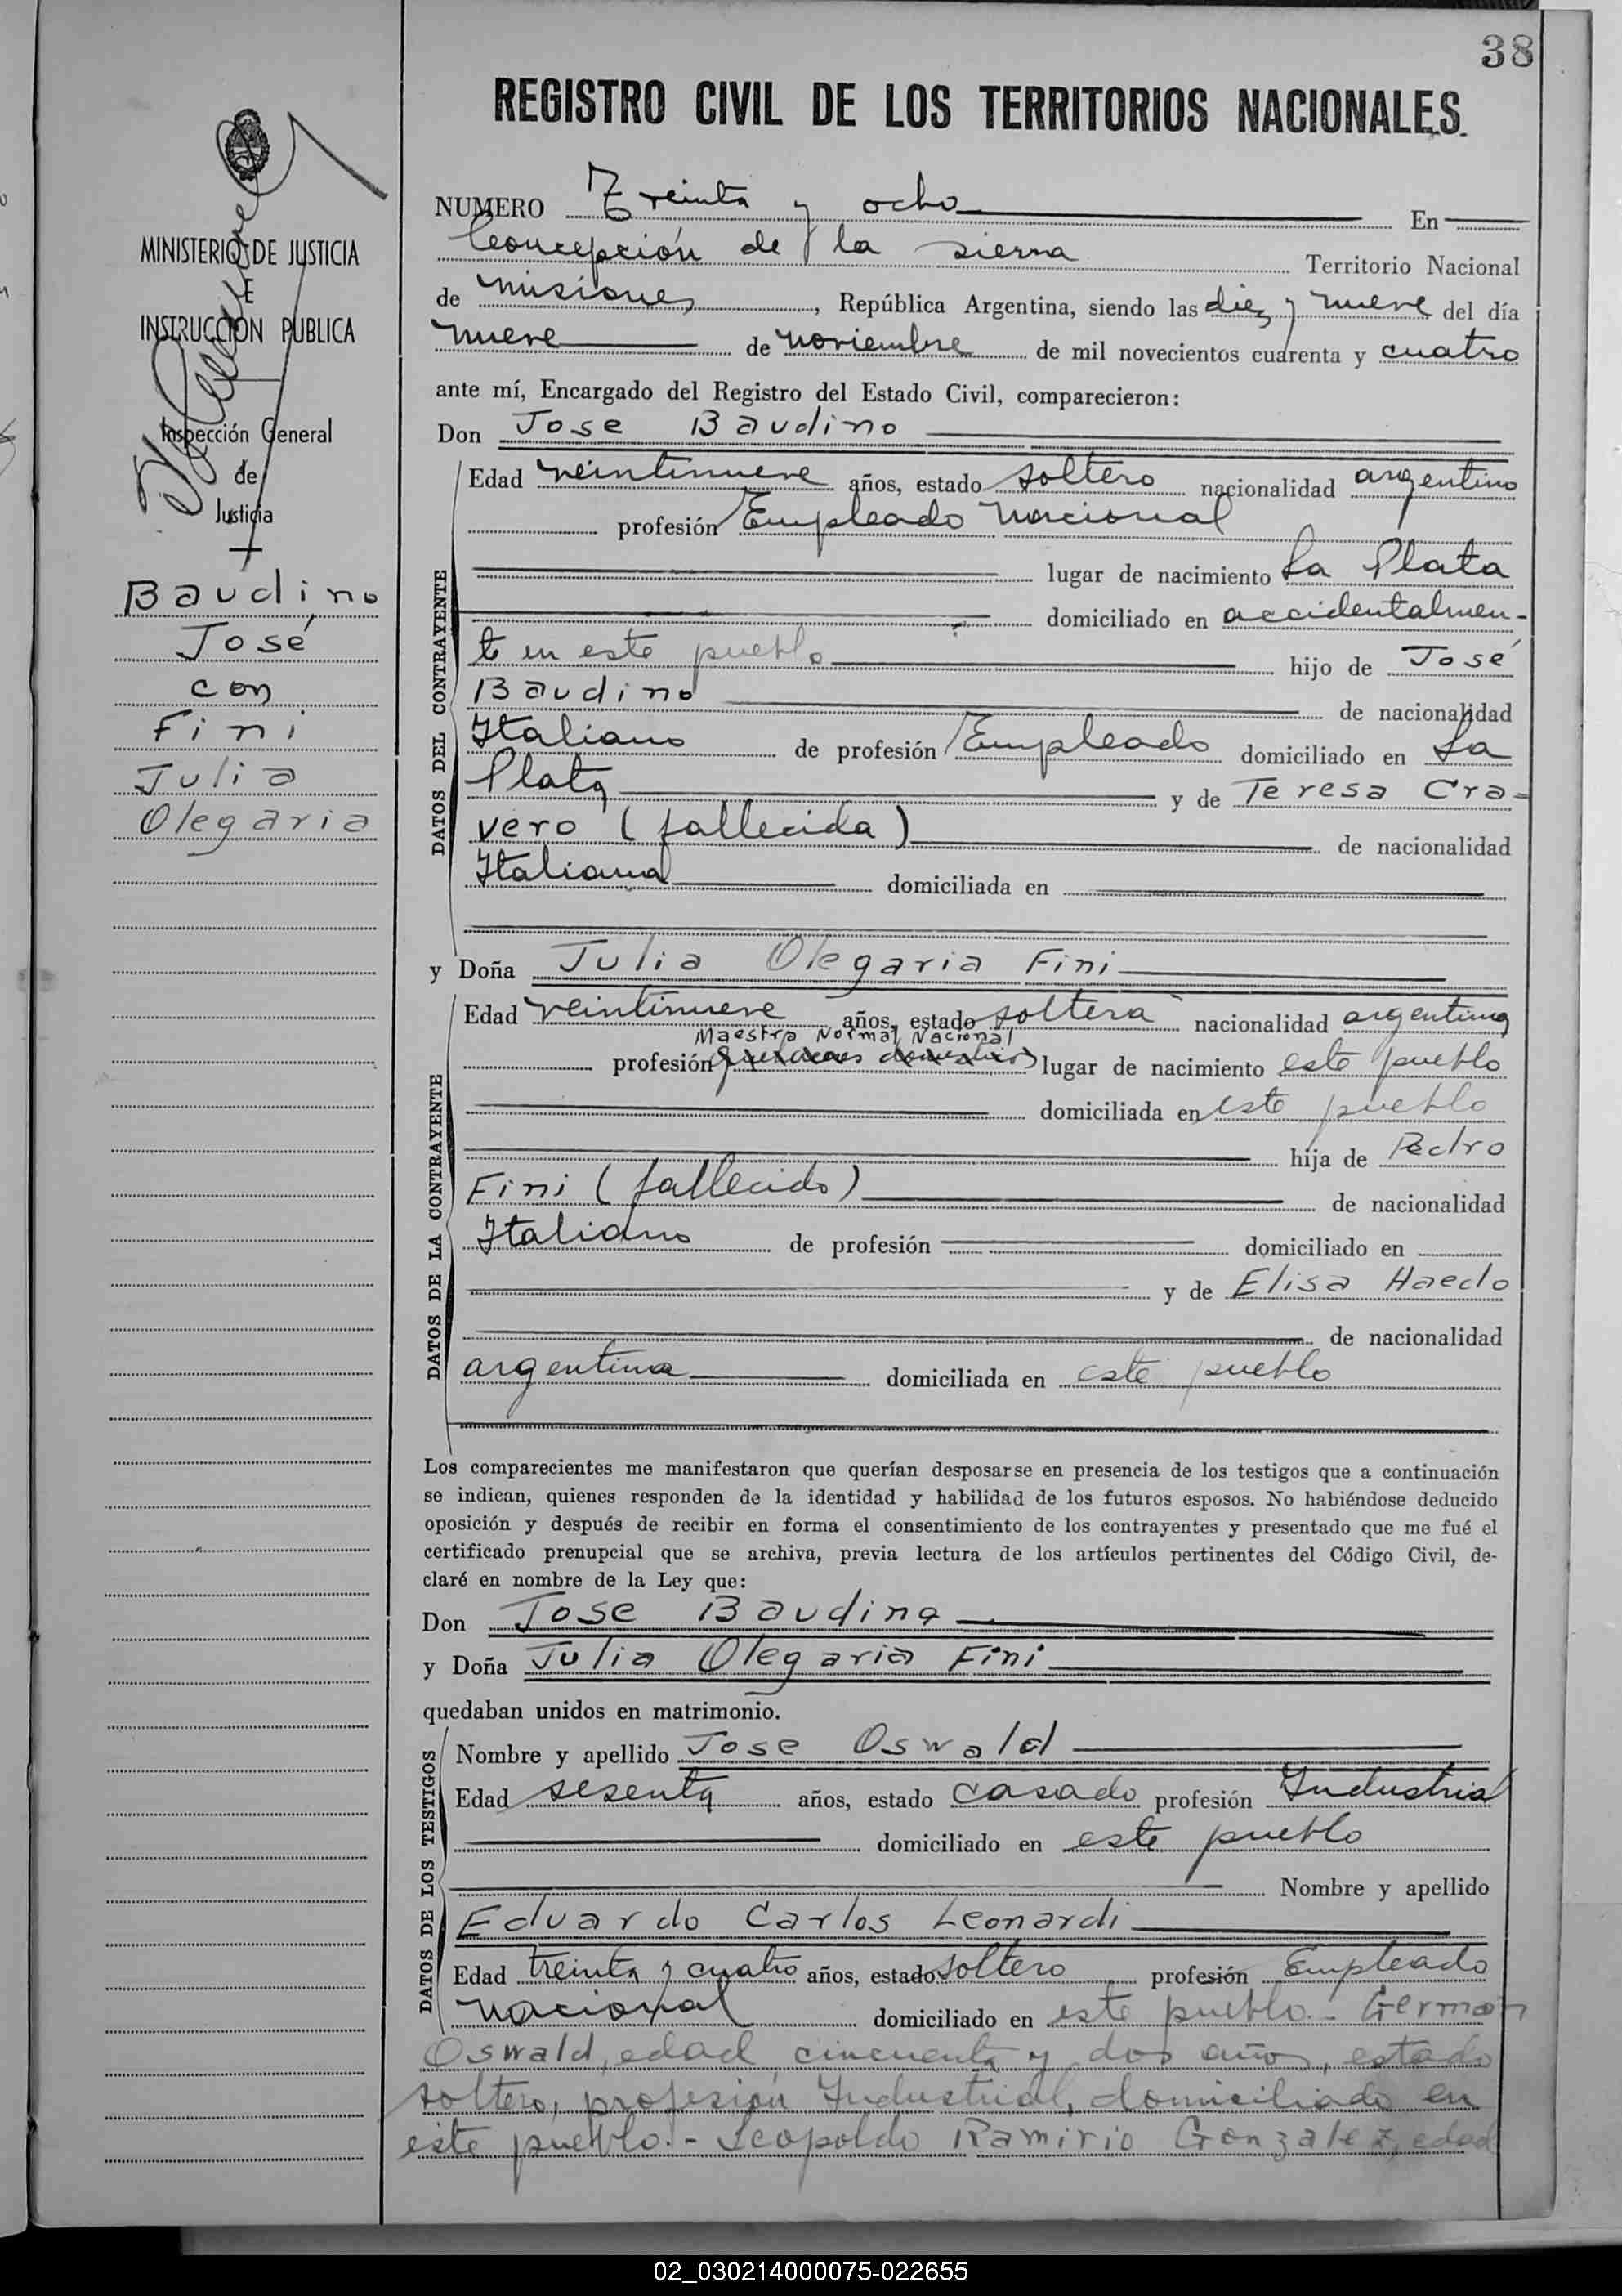 38
REGISTRO CIVIL DE LOS TERRITORIOS NACIONALES.
MINISTERIO DE JUSTICIA
E
INSTRUCCION PUBLICA
Inspección General
de
Justicia
Baudino
José
con
Fini
Julia
Olegaria
NUMERO Treinta y ocho En
Concepción de la sierra Territorio Nacional
de Misiones, República Argentina, siendo las diez y nueve del día
nueve de noviembre de mil novecientos cuarenta y cuatro
ante mí, Encargado del Registro del Estado Civil, comparecieron:
Don Jose Baudino
DATOS DEL CONTRAYENTE
Edad veintinueve años, estado soltero nacionalidad argentino
profesión Empleado Nacional
lugar de nacimiento La Plata
domiciliado en accidentalmen-
te en este pueblo hijo de José
Baudino de nacionalidad
Italiano de profesión Empleado domiciliado en La
Plata y de Teresa Cra-
vero (fallecida) de nacionalidad
Italiana domiciliada en
y Doña Julia Olegaria Fini
DATOS DE LA CONTRAYENTE
Edad veintinueve años, estado soltera nacionalidad argentina
Maestra Normal Nacional
profesión quehaceres domesticos lugar de nacimiento este pueblo
domiciliada en este pueblo
hija de Pedro
Fini (fallecido) de nacionalidad
Italiano de profesión domiciliado en
y de Elisa Haedo
de nacionalidad
argentina domiciliada en este pueblo
Los comparecientes me manifestaron que querían desposarse en presencia de los testigos que a continuación
se indican, quienes responden de la identidad y habilidad de los futuros esposos. No habiéndose deducido
oposición y después de recibir en forma el consentimiento de los contrayentes y presentado que me fué el
certificado prenupcial que se archiva, previa lectura de los artículos pertinentes del Código Civil, de-
claré en nombre de la Ley que:
Don Jose Baudino
y Doña Julia Olegaria Fini
quedaban unidos en matrimonio.
DATOS DE LOS TESTIGOS
Nombre y apellido Jose Oswald
Edad sesenta años, estado casado profesión Industrial
domiciliado en este pueblo
Nombre y apellido
Eduardo Carlos Leonardi
Edad treinta y cuatro años, estado soltero profesión Empleado
nacional domiciliado en este pueblo.- German
Oswald, edad cincuenta y dos años, estado
soltero, profesión Industrial, domiciliado en
este pueblo.- Leopoldo Ramirio Gonzalez, edad
02_030214000075-022655